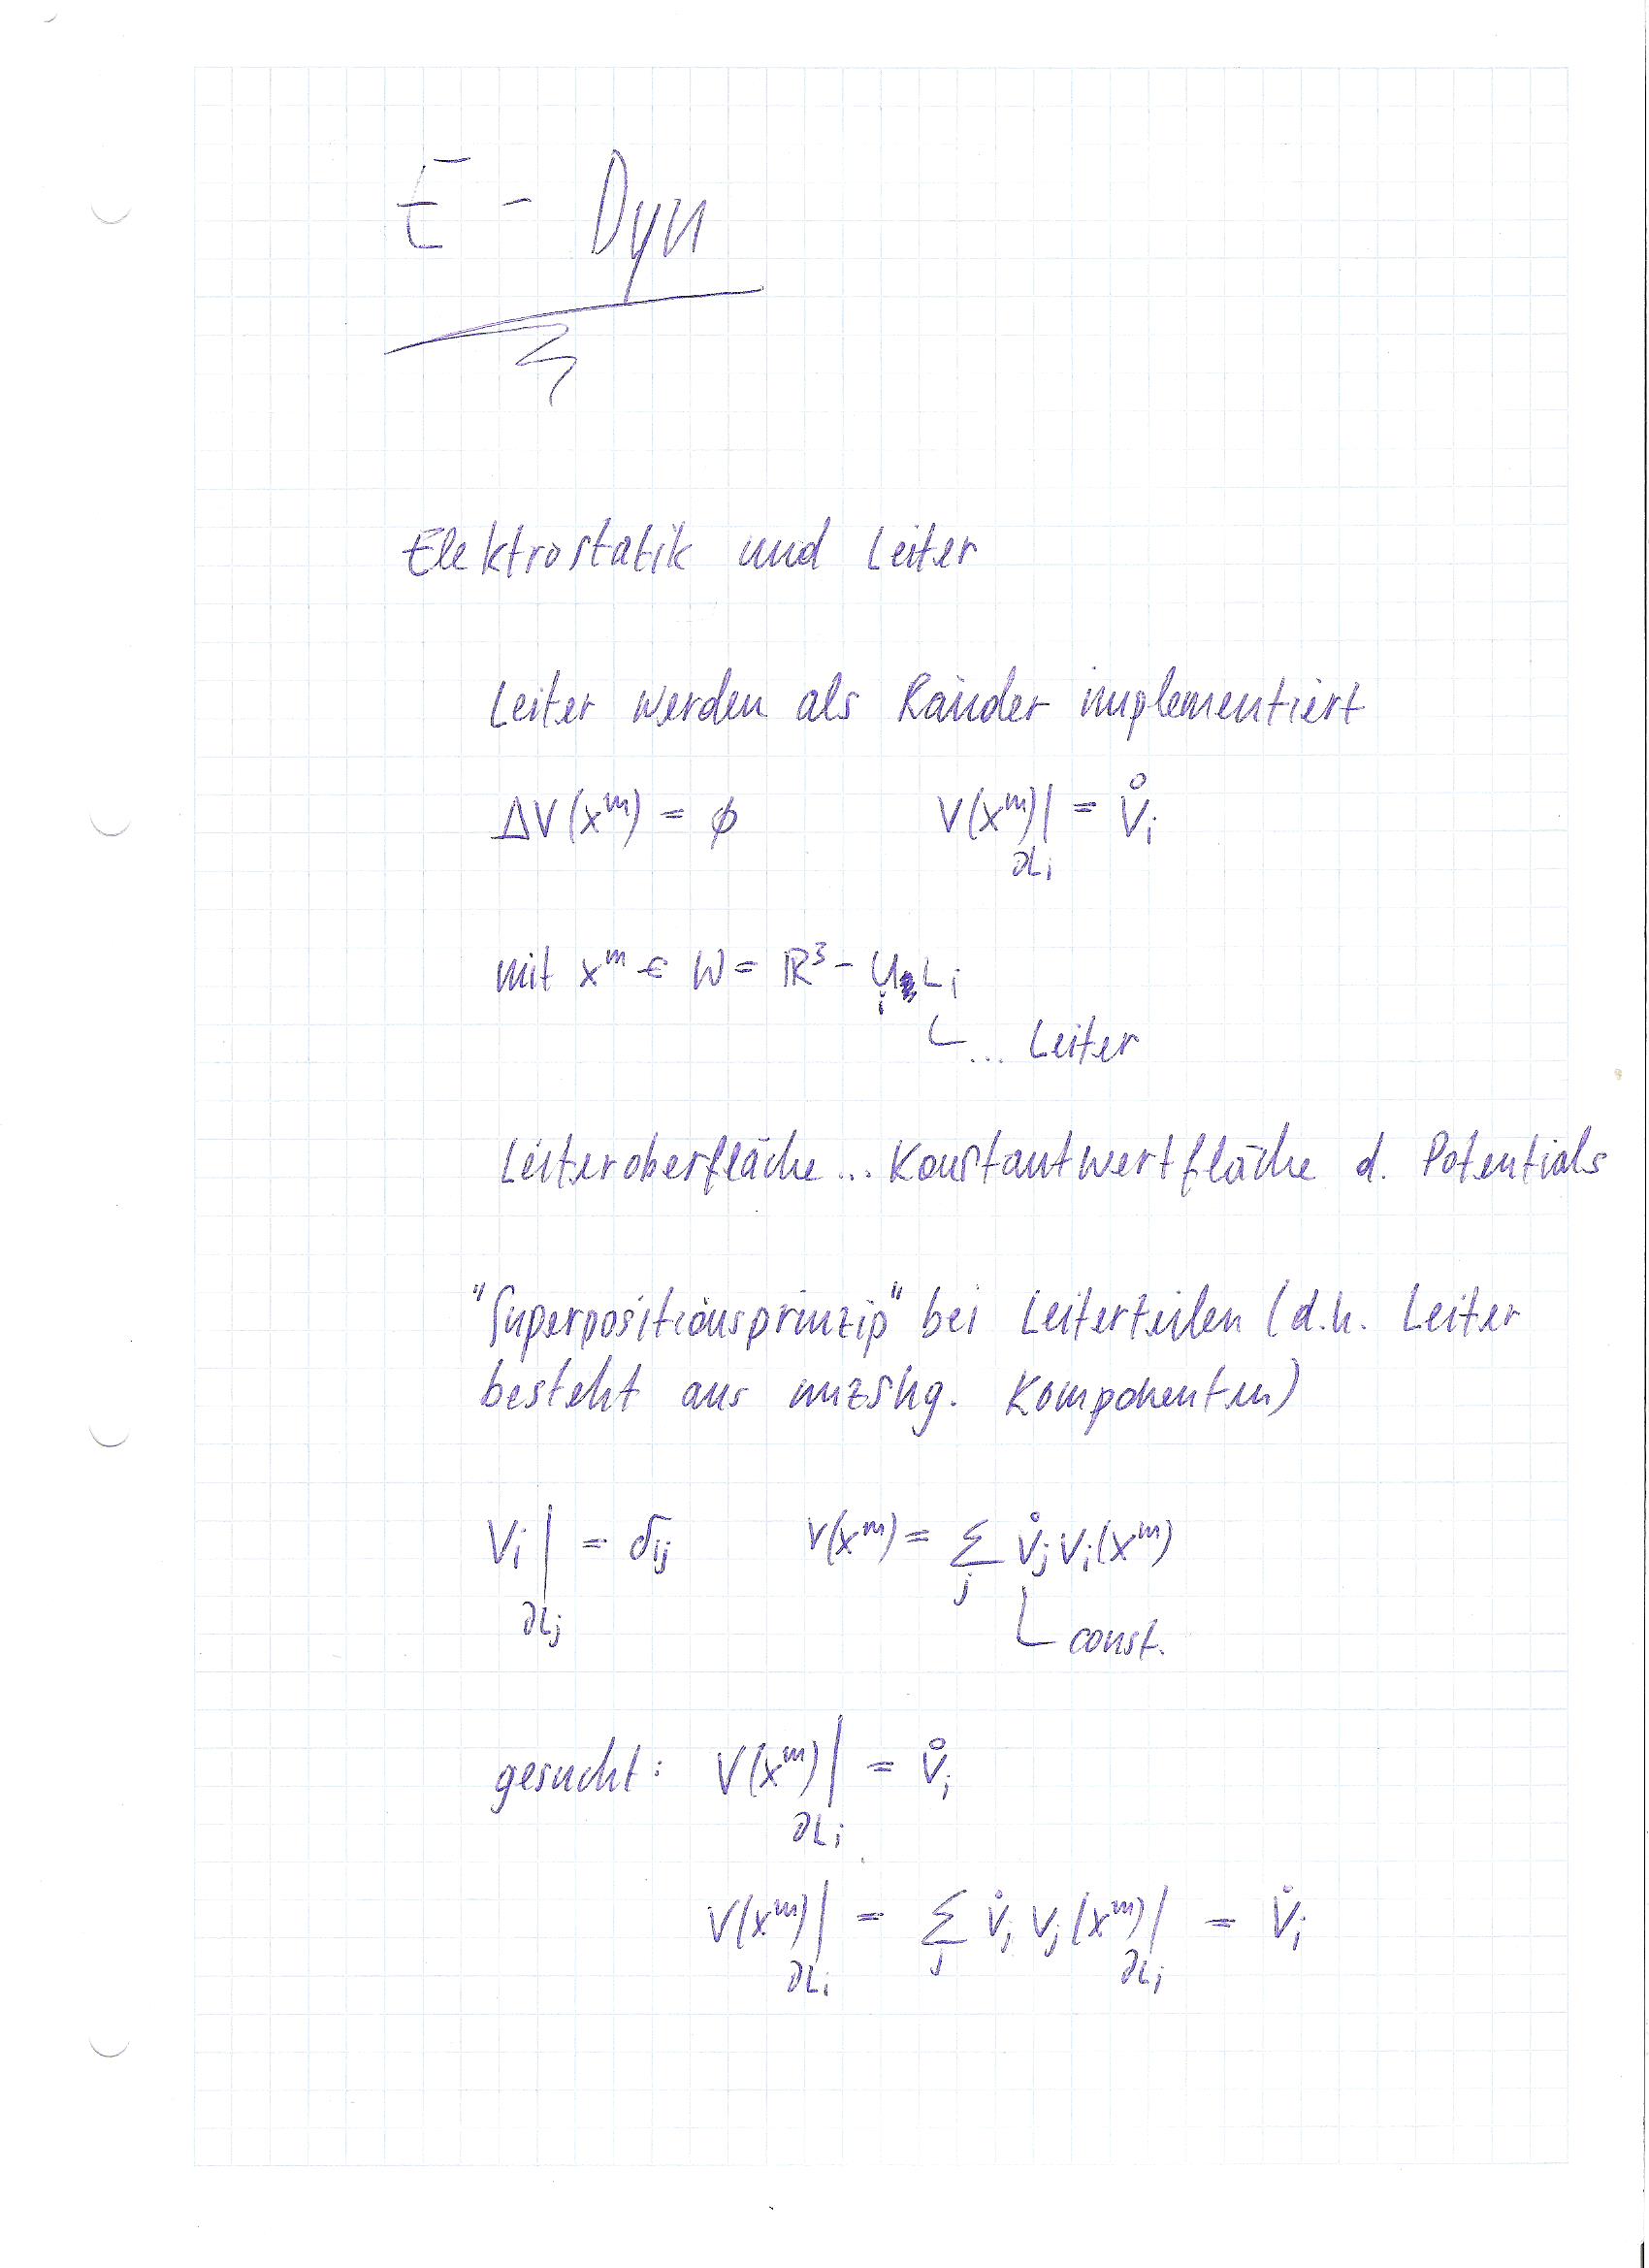 E - Dyn
Elektrostatik und Leiter
Leiter werden als Ränder implementiert
ΔV(xᵐ) = ϕ V(xᵐ)|∂Lᵢ = V̊ᵢ
mit xᵐ ∈ W = ℝ³ - ∪ᵢ Lᵢ
... Leiter
Leiteroberfläche ... Konstantwertfläche d. Potentials
"Superpositionsprinzip" bei Leiterteilen (d.h. Leiter
besteht aus nuzshg. Komponenten)
Vᵢ|∂Lⱼ = δᵢⱼ V(xᵐ) = Σⱼ V̊ⱼ Vᵢ(xᵐ)
const.
gesucht: V(xᵐ)|∂Lᵢ = V̊ᵢ
V(xᵐ)|∂Lᵢ = Σⱼ V̊ⱼ Vⱼ(xᵐ)|∂Lᵢ = V̊ᵢ